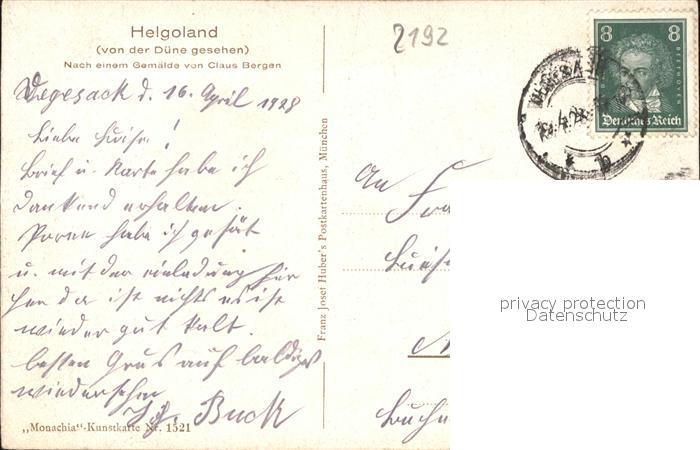 Helgoland
(von der Düne gesehen)
Nach einem Gemälde von Claus Bergen
2192
Vegesack d. 16. April 1928
Liebe Luise!
Brief u. Karte habe ich
dankend erhalten.
habe ich
u. mit der einladung
da ist nichts es ist
wieder gut kalt.
besten Grus auf baldiges
wiedersehn
Buck
„Monachia"-Kunstkarte Nr. 1521
Franz Josef Huber's Postkartenhaus, München
8 8
BEETHOVEN
Deutsches Reich
b
An
Luise
privacy protection
Datenschutz